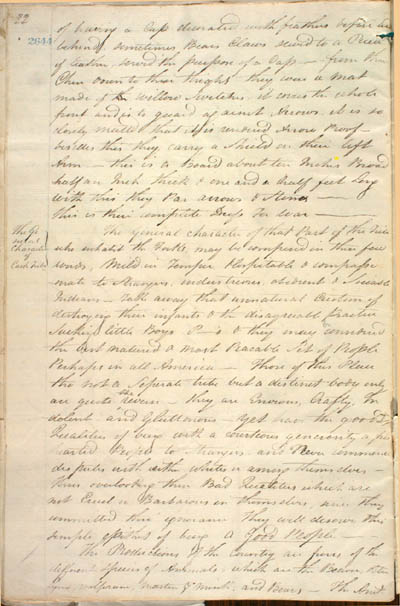 22
of having a Cap decorated with feathers before and
behind, sometimes Bears Claws sewed to a Piece
of leather, served the purpose of a Cap — from their
Chin down to their thighs they wore a mat
made of the willow Switches it covers the whole
front and is to guard against Arrows, it is so
closely matted that it is rendered Arrow Proof —
besides this they carry a Shield on their left
Arm — this is a Board about ten Inches Broad
half an Inch thick & one and a half feet long
with this they Par arrows & Stones —
This is their complete Dress for war —
The general character of that Part of the tribe
who inhabit the Forks, may be comprised in this few
words, Mild in Temper Hospitable & compassio
nate to Strangers, industrious, obedient & Sociable
Indians — take away that unnatural Custom of
destroying their infants & the disagreeable practice
little Boys & they may be considered
the best natured & most Peacable Set of People
Perhaps in all America — Those of this Place
tho not a Seperate tribe but a distinct body only
are quite the reverse — they are Envious, Crafty, In
dolent and Gluttonious — Yet have the good
Qualities of being with a courteous generosity
hearted People to Strangers and Never commence
disputes with either whites or among themselves —
thus overlooking their Bad Qualities which are
not Cruel or Barbarous in themselves, since they
committed thro ignorance they will deserve this
simple epithet of being a Good People —
The Productions of the Country are furs of the
different Species of Animals, which are the Beaver, Otter
wolveren, marten & Mink, and Bears — The
The Ge
neral
Character
of